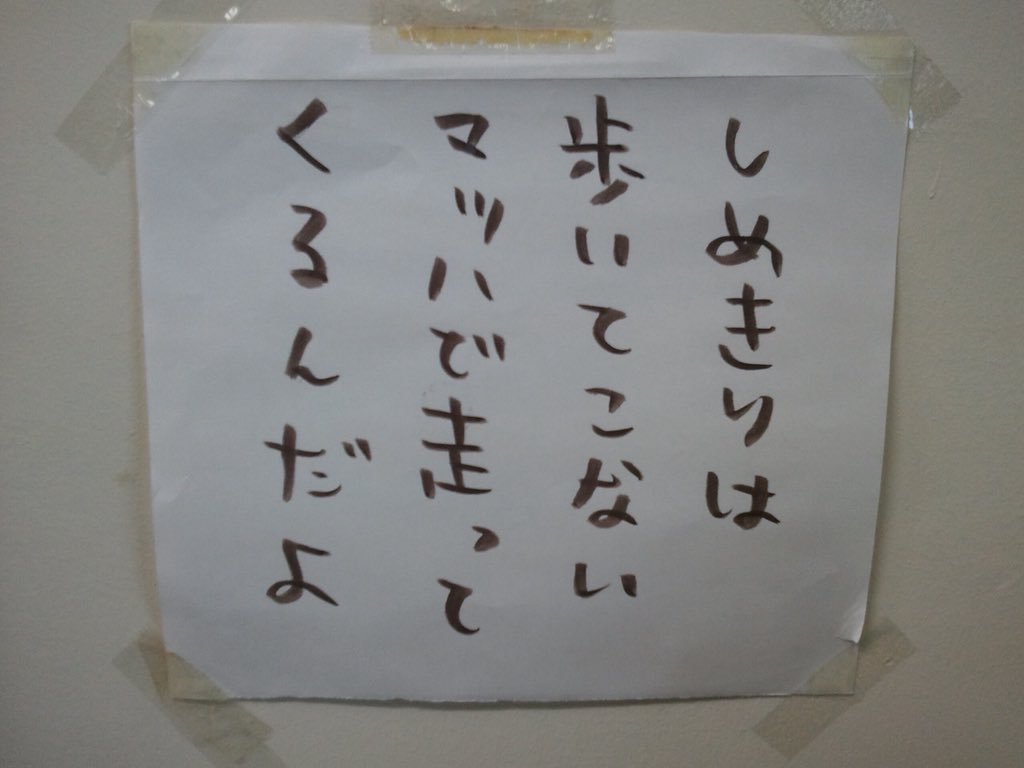 しめきりは
歩いてこない
マッハで走って
くるんだよ